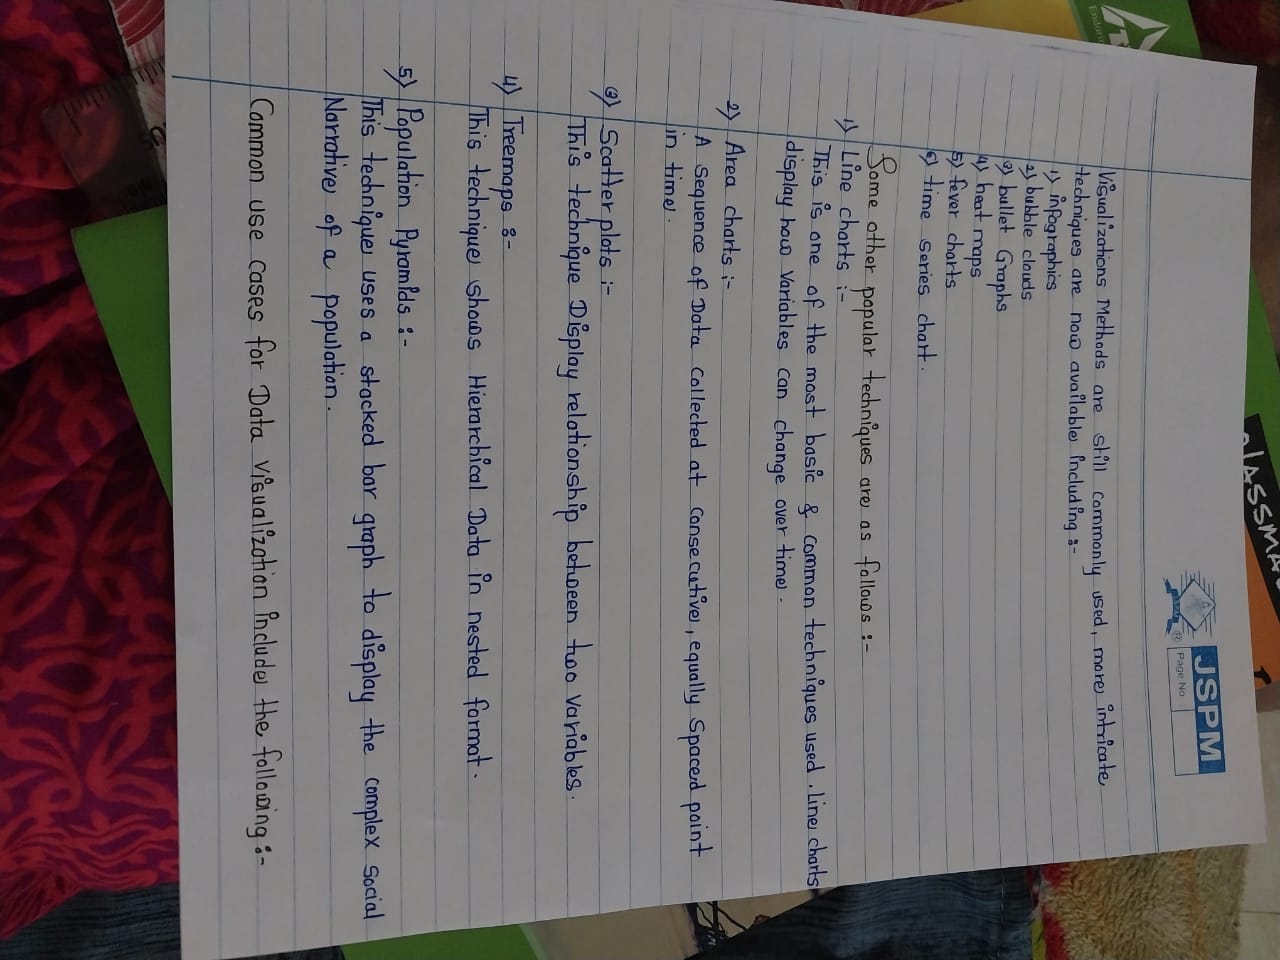 CLASSMA
JSPM
JSPM
®
Page No
Enduri
Visualizations Methods are still commonly used, more intricate
techniques are now available including :-
1) infographics
2) bubble clouds
3) bullet Graphs
4) heat maps
5) fever charts
6) time series chart.
Some other popular techniques are as follows :-
1) Line charts :-
This is one of the most basic & common techniques used. Line charts
display how Variables can change over time.
2) Area charts :-
A Sequence of Data Collected at Consecutive, equally Spaced point
in time.
3) Scatter plots :-
This technique Display relationship between two variables.
4) Treemaps :-
This technique shows Hierarchical Data in nested format.
5) Population Pyramids :-
This technique uses a stacked bar graph to display the complex Social
Narrative of a population.
Common use cases for Data Visualization include the following :-